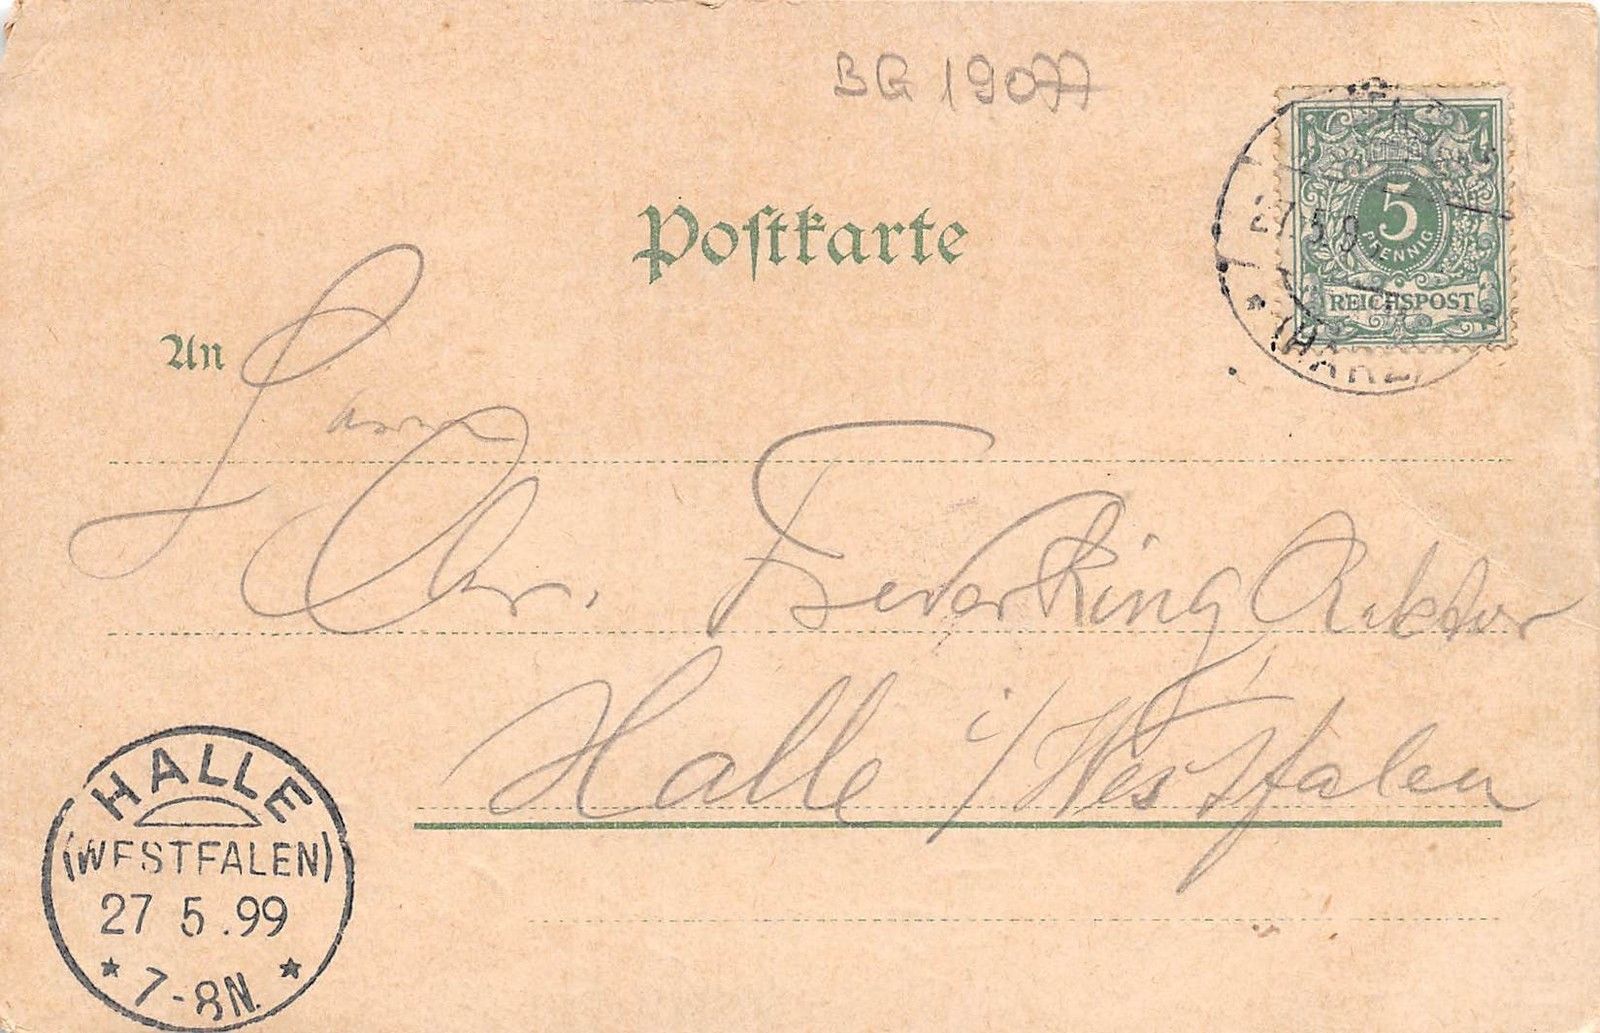 BG 19077
Postkarte
5
PFENNIG
REICHSPOST
27.5.9
(HARZ)
An
Herrn
Chr. Feverking Rektor
Halle i/Westfalen
HALLE
(WESTFALEN)
27 5.99
* 7-8N. *